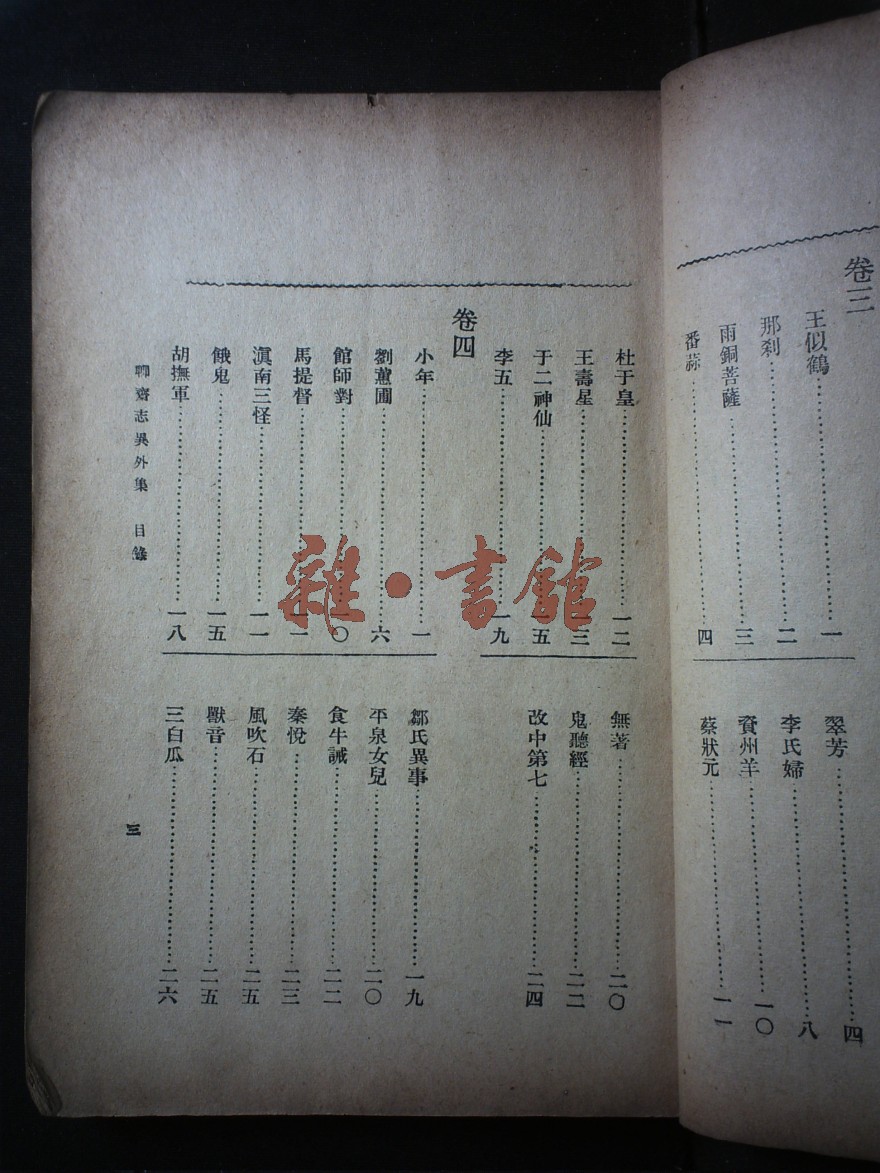 卷三
王似鶴……一
那剎……二
雨銅菩薩……三
番蒜……四
翠芳……四
李氏婦……八
資州羊……一〇
蔡狀元……一一
杜于皇……一二
王壽星……一三
于二神仙……一五
李五……一九
無著……二〇
鬼聽經……二二
改中第七……二四
卷四
小年……一
劉薫圃……六
館師對……一〇
馬提督……一一
滇南三怪……一一
餓鬼……一五
胡撫軍……一八
鄒氏異事……一九
平泉女兒……二〇
食牛誡……二二
秦悅……二三
風吹石……二五
獸音……二五
三白瓜……二六
聊齋志異外集 目錄
三
雜·書館